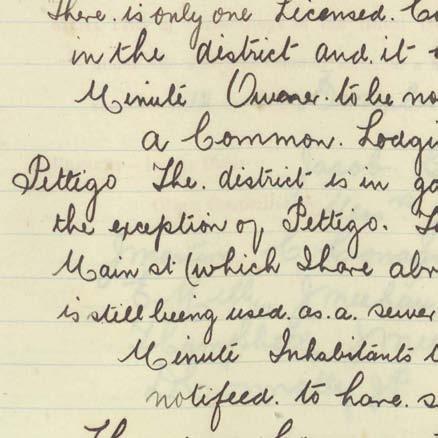 There. is only one Licensed. C
in the district and. it
Minute Owner. to be no
a Common. Lodgi
Pettigo The. district is in go
the exception of Pettigo.
Main st (which I have abr
is still being used. as. a. sewer
Minute Inhabitants t
notifeed. to have. s